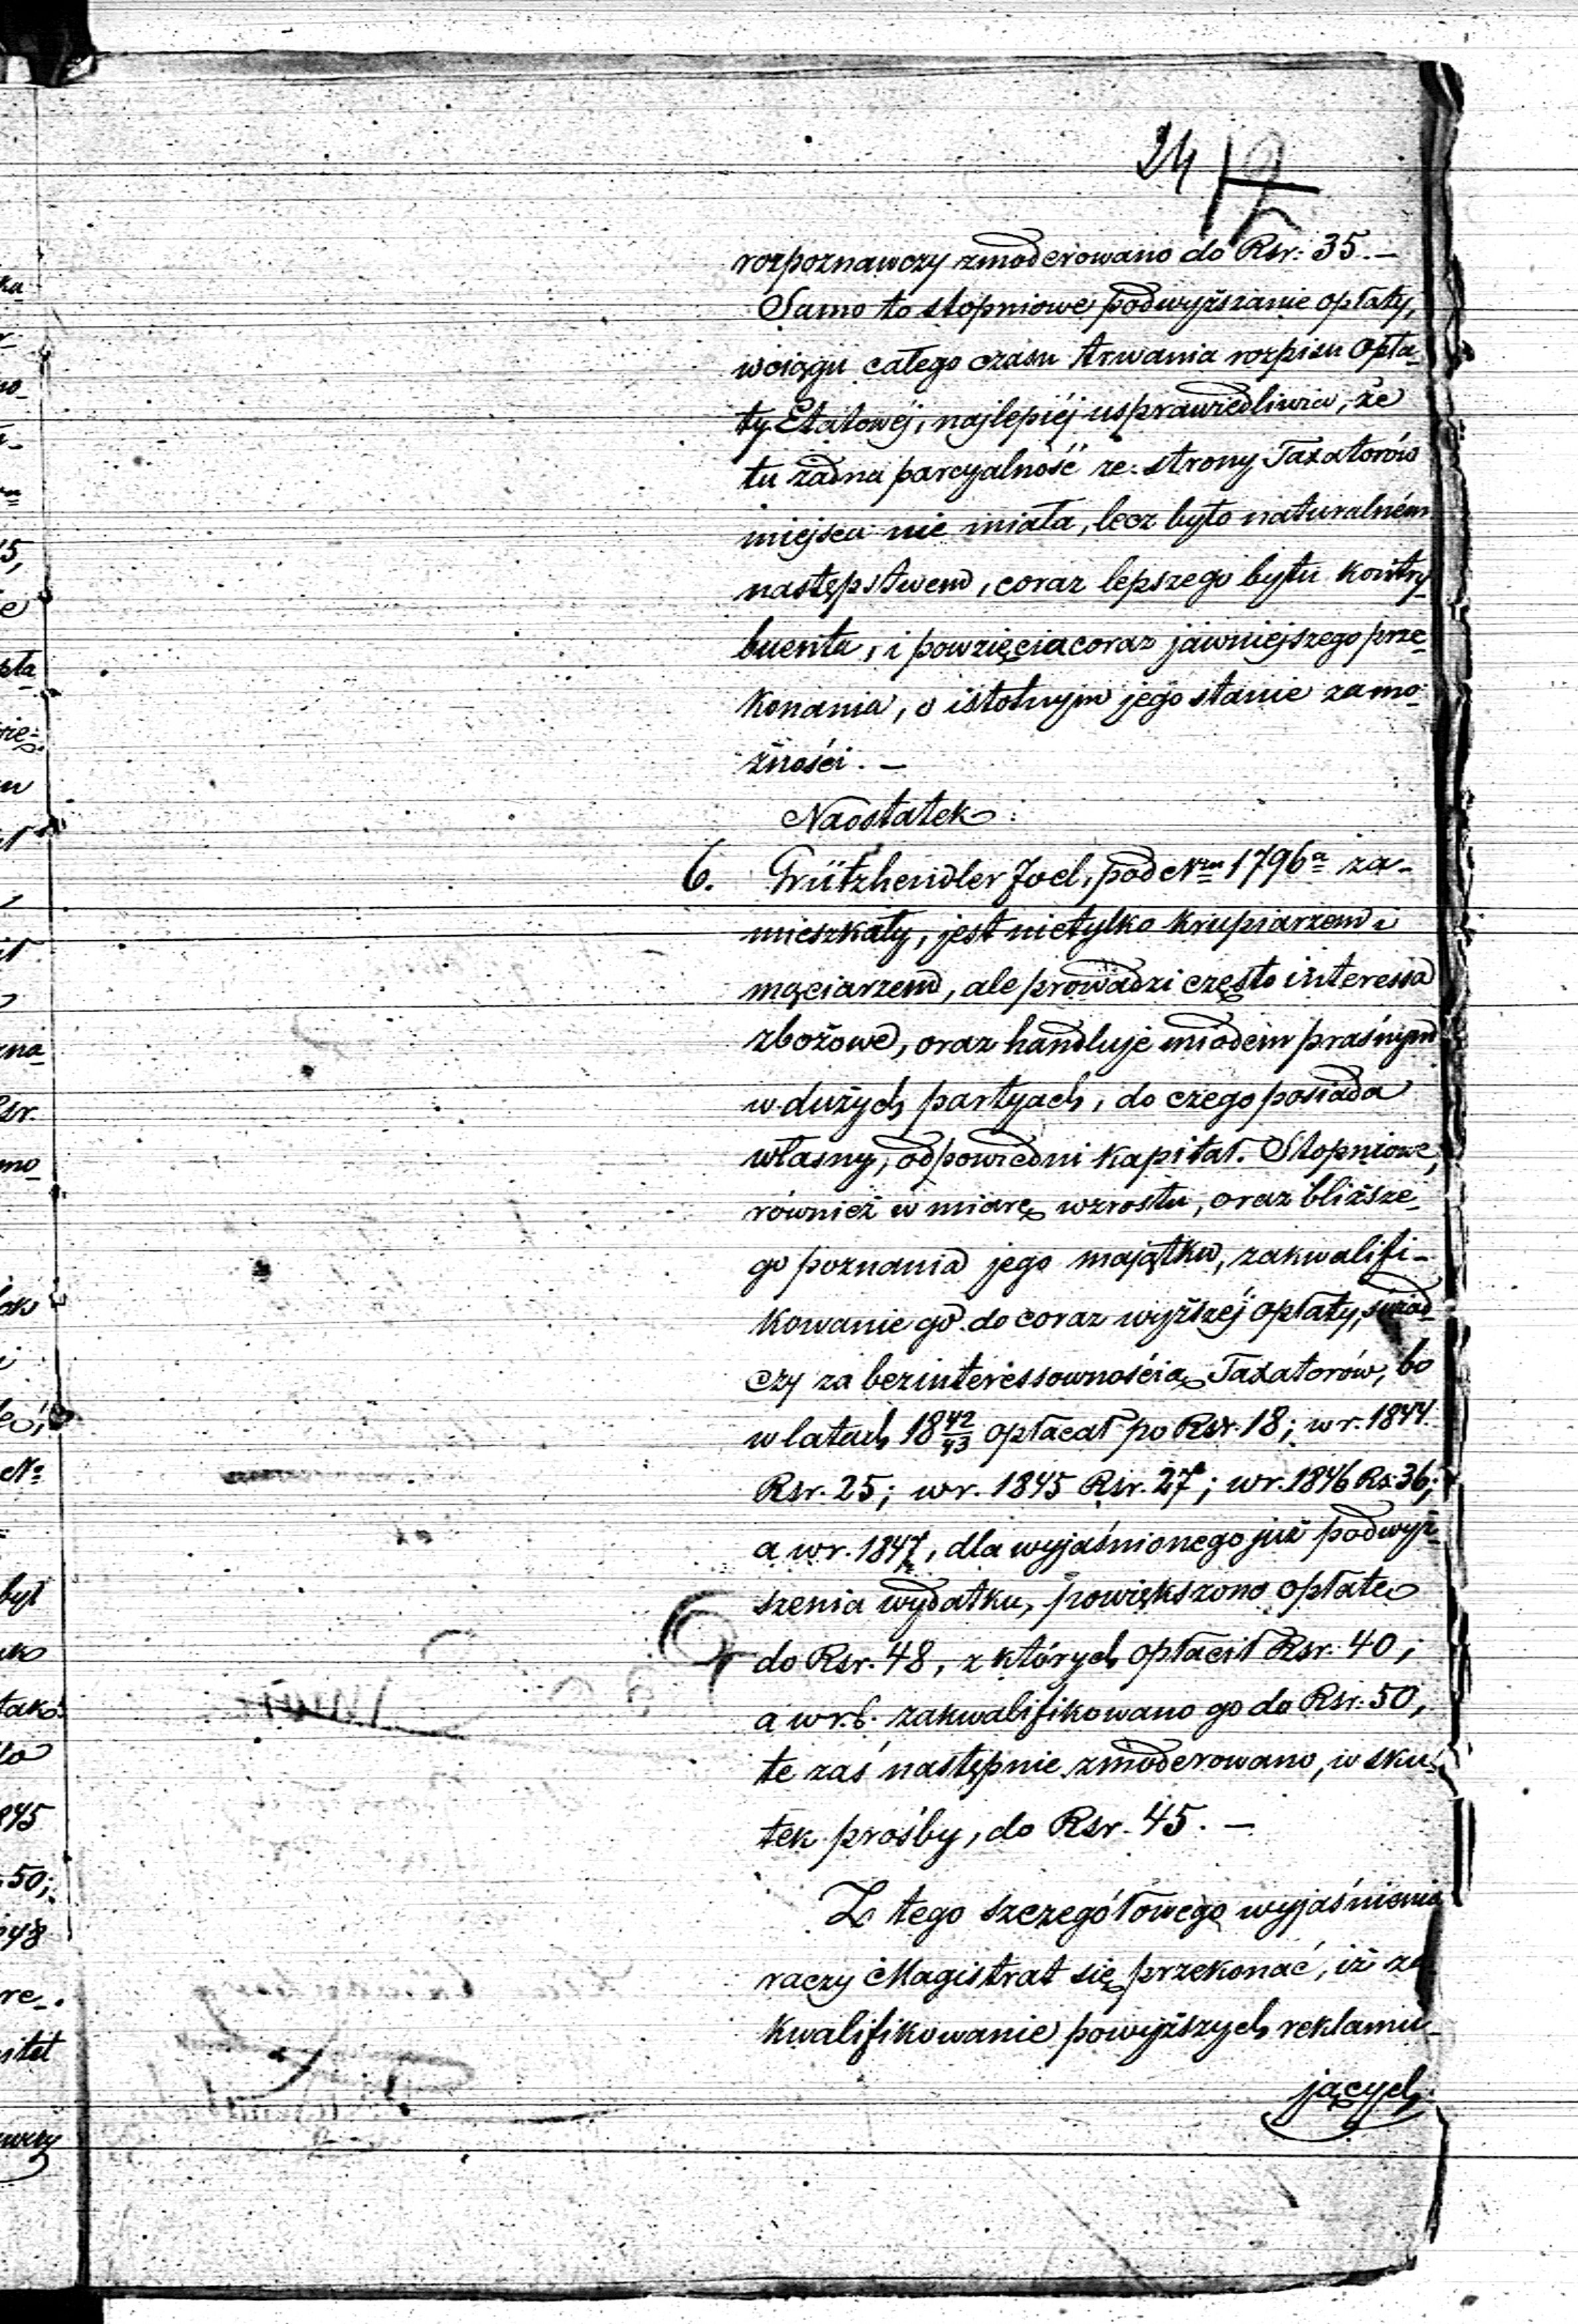 24 19
rozpoznawczy zmoderowano do Rsr: 35.—
Samo to stopniowe podwyższanie opłaty,
wciągu całego czasu trwania rozpisu Opła-
ty Etatowéj, najlepiéj usprawiedliwia, że
tu żadna parcyalność ze strony Taxatorów
miejsca nie miała, lecz było naturalném
następstwem, coraz lepszego bytu kontry-
buenta, i powzięcia coraz jawniejszego prze-
konania, o istotnym jego stanie zamo-
żności.—
Naostatek:
6. Grützhendler Joel, pod Nrm 1796a za-
mieszkały, jest nietylko krupiarzem i
mączarzem, ale prowadzi często interessa
zbożowe, oraz handluje miodem praśnym
w dużych partyach, do czego posiada
własny, odpowiedni kapitał. Stopniowe,
również w miarę wzrostu, oraz bliższe-
go poznania jego majątku, zakwalifi-
kowanie go do coraz wyższéj opłaty, świad-
czy za bezinteressownością Taxatorów, bo
w latach 18 42/43 opłacał po Rsr. 18; w r. 1844
Rsr. 25; w r. 1845 Rsr. 27; w r. 1846 Rs: 36;
a w r. 1847, dla wyjaśnionego już podwyż-
szenia wydatku, powiększono opłatę
do Rsr. 48, z których opłacił Rsr: 40;
a w r. b. zakwalifikowano go do Rsr: 50,
te zaś następnie zmoderowano, w sku-
tek prośby, do Rsr. 45.—
Z tego szczegółowego wyjaśnienia
raczy Magistrat się przekonać, iż za-
kwalifikowanie powyższych reklamu-
jących